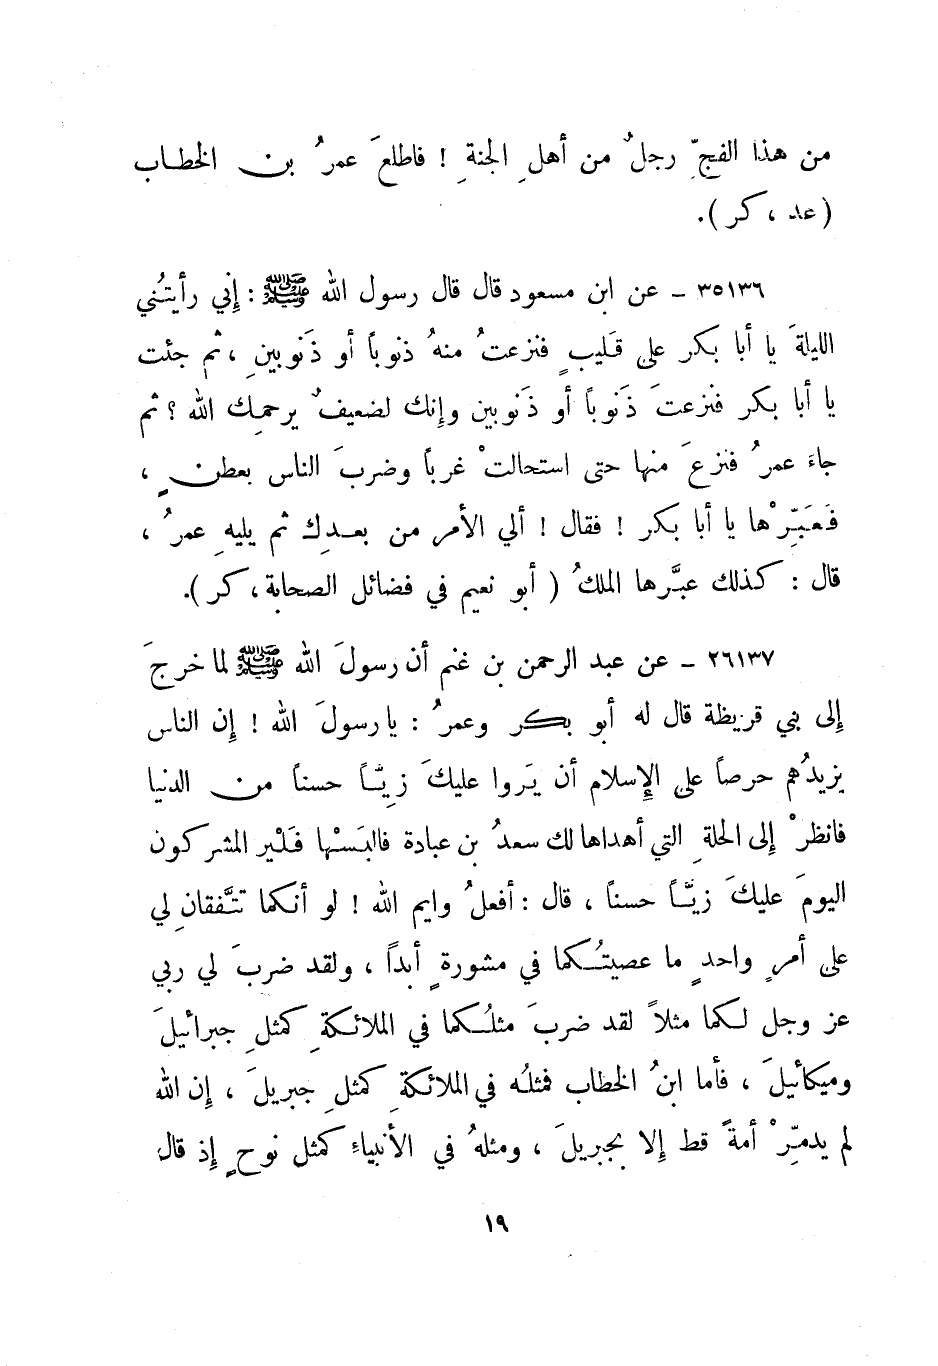 من هذا الفجِّ رجلٌ من أهلِ الجنةِ ! فاطلعَ عمرُ بن الخطاب
( عد ، كر ) .
٣٥١٣٦ - عن ابن مسعود قال قال رسول الله ﷺ : إني رأيتُني
الليلةَ يا أبا بكر على قليبٍ فنزعتُ منهُ ذنوباً أو ذَنوبينِ ، ثم جئت
يا أبا بكر فنزعتَ ذَنوباً أو ذَنوبين وإنك لضعيفٌ يرحمك الله ؟ ثم
جاءَ عمرُ فنزعَ منها حتى استحالتْ غرباً وضربَ الناس بعطنٍ ،
فَعَبِّرْها يا أبا بكر ! فقال ! ألي الأمر من بعدِك ثم يليهِ عمرُ ،
قال : كذلك عبَّرها الملكُ ( أبو نعيم في فضائل الصحابة ، كر ) .
٢٦١٣٧ - عن عبد الرحمن بن غنم أن رسولَ الله ﷺ لما خرجَ
إلى بني قريظة قال له أبو بكر وعمرُ : يا رسولَ الله ! إن الناس
يزيدُهم حرصاً على الإسلام أن يَروا عليكَ زِيَّاً حسناً من الدنيا
فانظرْ إلى الحلةِ التي أهداها لك سعدُ بن عبادة فالبَسْها فَلْير المشركون
اليومَ عليكَ زيَّاً حسناً ، قال : أفعلُ وايم الله ! لو أنكما تتَّفقانِ لي
على أمرٍ واحدٍ ما عصيتُكما في مشورةٍ أبداً ، ولقد ضربَ لي ربي
عز وجل لكما مثلاً لقد ضربَ مثلُكما في الملائكةِ كمثلِ جبرائيلَ
وميكائيلَ ، فأما ابنُ الخطاب فمثلُه في الملائكةِ كمثلِ جبريلَ ، إن الله
لم يدمِّرْ أمةً قط إلا بجبريلَ ، ومثلهُ في الأنبياءِ كمثل نوحٍ إذ قال
١٩